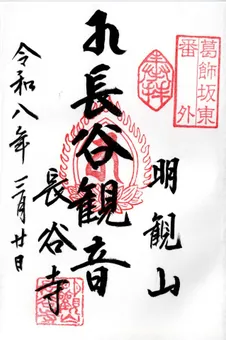 葛飾坂東
番外
奉拝
明観山
札長谷観音
長谷寺
令和八年三月廿日